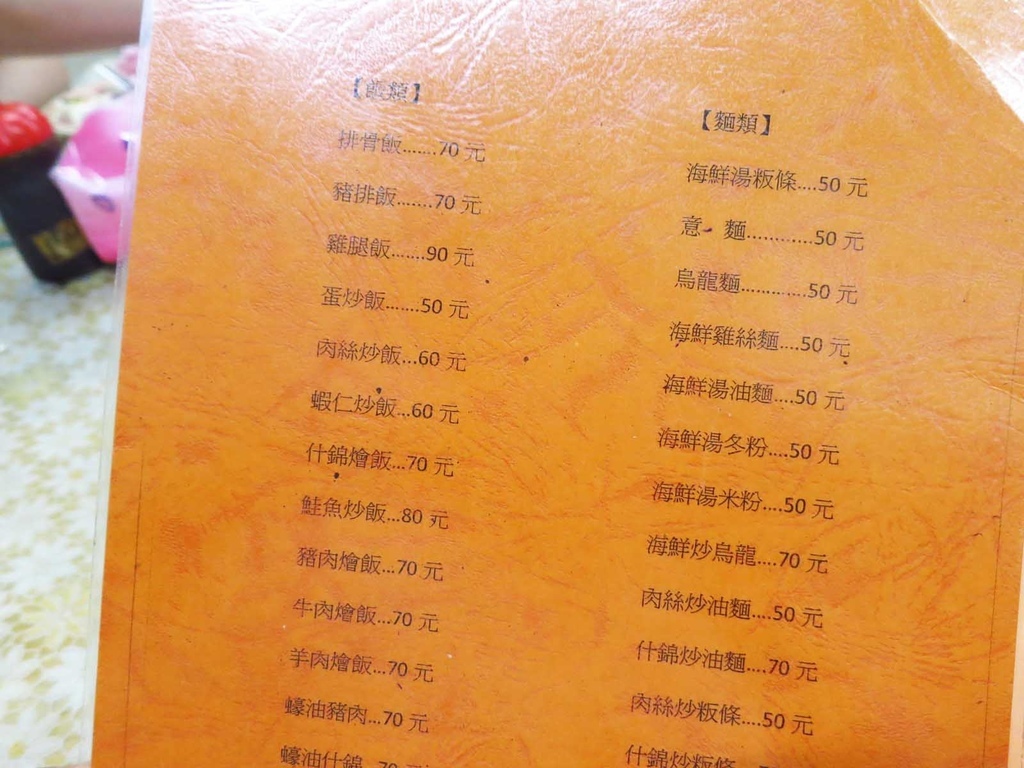 【飯類】
排骨飯.......70 元
豬排飯.......70 元
雞腿飯.......90 元
蛋炒飯.......50 元
肉絲炒飯...60 元
蝦仁炒飯...60 元
什錦燴飯...70 元
鮭魚炒飯...80 元
豬肉燴飯...70 元
牛肉燴飯...70 元
羊肉燴飯...70 元
蠔油豬肉...70 元
蠔油什錦...70 元
【麵類】
海鮮湯粄條....50 元
意 麵............50 元
烏龍麵.............50 元
海鮮雞絲麵....50 元
海鮮湯油麵....50 元
海鮮湯冬粉....50 元
海鮮湯米粉....50 元
海鮮炒烏龍....70 元
肉絲炒油麵....50 元
什錦炒油麵....70 元
肉絲炒粄條....50 元
什錦炒粄條